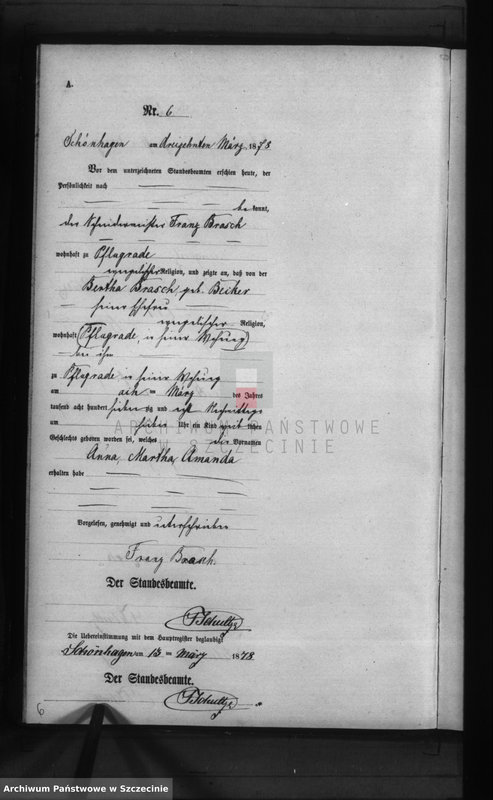 A.
Nr. 6
Schönhagen am dreizehnten März 1878
Vor dem unterzeichneten Standesbeamten erschien heute, der
Persönlichkeit nach
bekannt,
der Schneidermeister Franz Brasch
wohnhaft zu Pflugrade
evangelischer Religion, und zeigte an, daß von der
Bertha Brasch geb. Becker
seiner Ehefrau
evangelischer Religion,
wohnhaft Pflugrade in seiner Wohnung
bei ihm
zu Pflugrade in seiner Wohnung
am acht März des Jahres
tausend acht hundert siebenzig und acht Nachmittags
um sieben Uhr ein Kind weiblichen
Geschlechts geboren worden sei, welches die Vornamen
Anna, Martha, Amanda
erhalten habe
Vorgelesen, genehmigt und unterschrieben
Franz Brasch.
Der Standesbeamte.
Schultze
Die Uebereinstimmung mit dem Hauptregister beglaubigt
Schönhagen am 13 ten März 1878.
Der Standesbeamte.
Schultze
6
ARCHIWUM PAŃSTWOWE
W SZCZECINIE
Archiwum Państwowe w Szczecinie